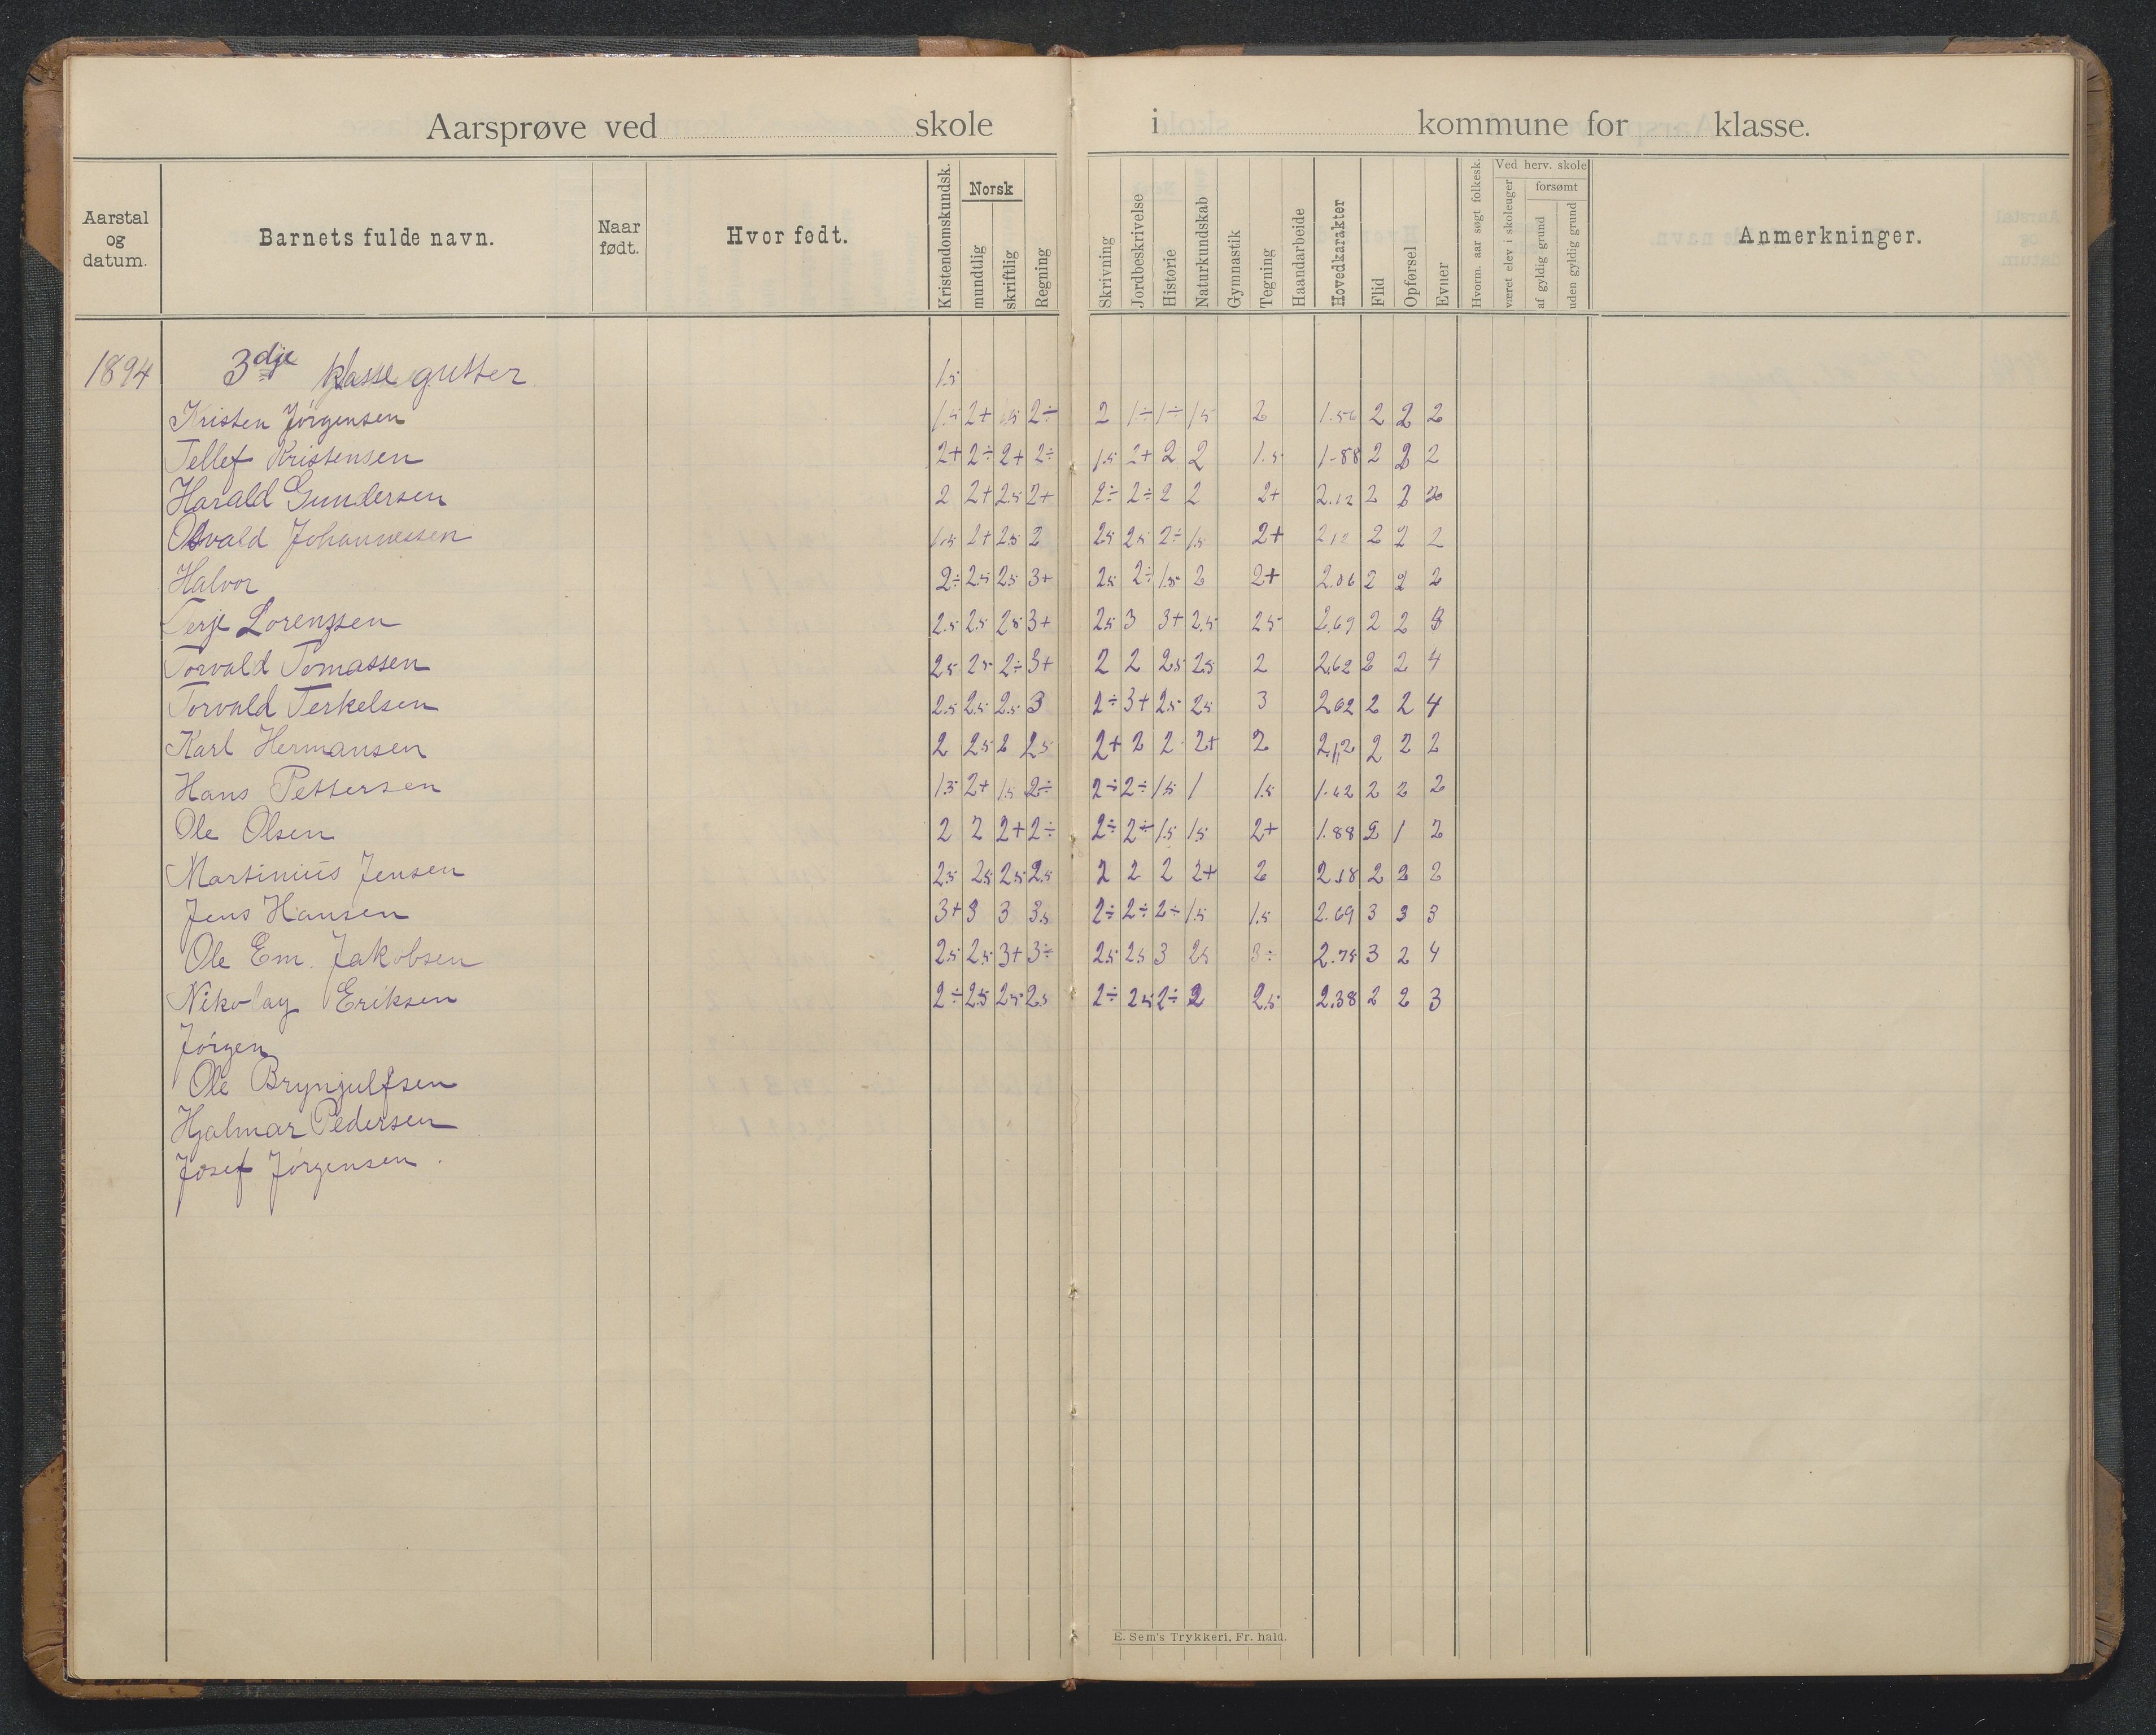 Aarsprøve ved skole i kommune for klasse.
Aarstal og datum. Barnets fulde navn. Naar født. Hvor født. Kristendomskundsk. Norsk mundtlig skriftlig Regning Skrivning Jordbeskrivelse Historie Naturkundskab Gymnastik Tegning Haandarbeide Hovedkarakter Flid Opførsel Evner Hvorm. aar søgt folkesk. Ved herv. skole været elev i skoleuger forsømt af gyldig grund uden gyldig grund Anmerkninger.
1894 3dje klasse gutter 1.5
Kristen Jørgensen 1.5 2+ 1.5 2÷ 2 1÷ 1÷ 1.5 2 1.56 2 2 2
Tellef Kristensen 2+ 2÷ 2+ 2÷ 1.5 2+ 2 2 1.5 1.88 2 2 2
Harald Gundersen 2 2+ 2.5 2+ 2÷ 2÷ 2 2 2+ 2.12 2 2
Osvald Johannessen 1.5 2+ 2.5 2 2.5 2.5 2÷ 1.5 2+ 2.12 2 2 2
Halvor 2÷ 2.5 2.5 3+ 2.5 2÷ 1.5 2 2+ 2.06 2 2 2
Terje Lorenzen 2.5 2.5 2.5 3+ 2.5 3 3+ 2.5 2.5 2.69 2 2 3
Torvald Tomassen 2.5 2.5 2÷ 3+ 2 2 2.5 2.5 2 2.62 2 2 4
Torvald Terkelsen 2.5 2.5 2.5 3 2÷ 3+ 2.5 2.5 3 2.62 2 2 4
Karl Hermansen 2 2.5 2 2.5 2+ 2 2 2+ 2 2.12 2 2 2
Hans Pettersen 1.5 2+ 1.5 2÷ 2÷ 2÷ 1.5 1 1.5 1.62 2 2 2
Ole Olsen 2 2 2+ 2÷ 2÷ 2÷ 1.5 1.5 2+ 1.88 2 1 2
Martinius Jensen 2.5 2.5 2.5 2.5 2 2 2 2+ 2 2.18 2 2 2
Jens Hansen 3+ 3 3 3.5 2÷ 2÷ 2÷ 1.5 1.5 2.69 3 3 3
Ole Em. Jakobsen 2.5 2.5 3+ 3÷ 2.5 2.5 3 2.5 3÷ 2.75 3 2 4
Nikolay Eriksen 2÷ 2.5 2.5 2.5 2÷ 2.5 2÷ 2 2.5 2.38 2 2 3
Jørgen
Ole Brynjulfsen
Hjalmar Pedersen
Josef Jørgensen.
E. Sem's Trykkeri, Fr. hald.